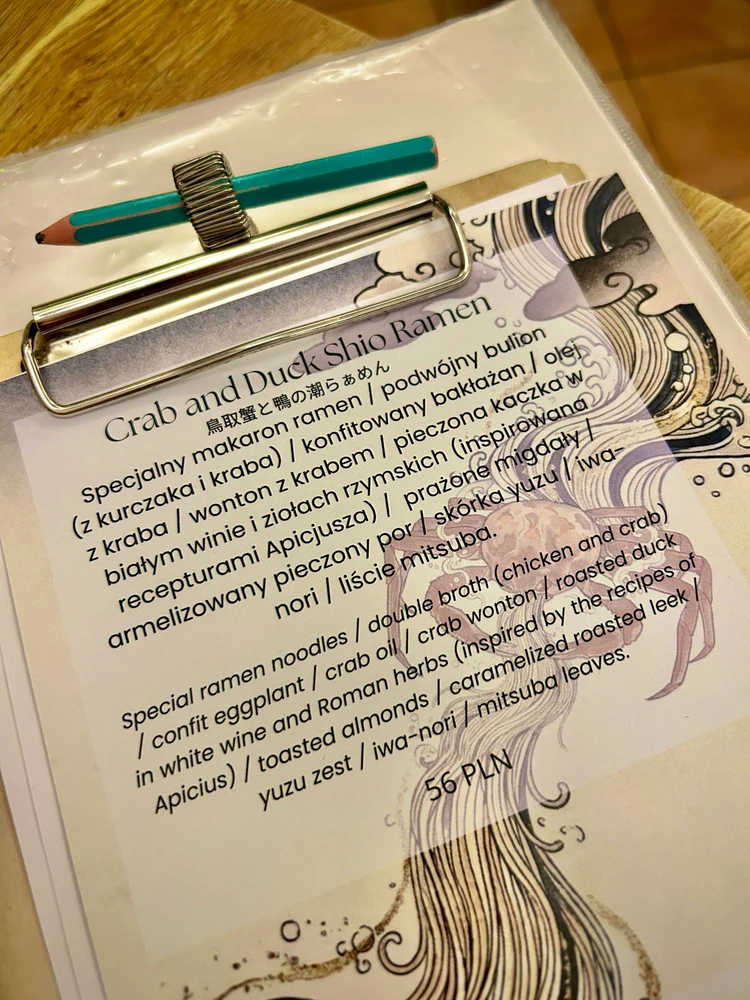 Crab and Duck Shio Ramen
鳥取蟹と鴨の潮らぁめん
Specjalny makaron ramen / podwójny bulion
(z kurczaka i kraba) / konfitowany bakłażan / olej
z kraba / wonton z krabem / pieczona kaczka w
białym winie i ziołach rzymskich (inspirowana
recepturami Apicjusza) / prażone migdały /
armelizowany pieczony por / skórka yuzu / iwa-
nori / liście mitsuba.
Special ramen noodles / double broth (chicken and crab)
/ confit eggplant / crab oil / crab wonton / roasted duck
in white wine and Roman herbs (inspired by the recipes of
Apicius) / toasted almonds / caramelized roasted leek /
yuzu zest / iwa-nori / mitsuba leaves.
56 PLN